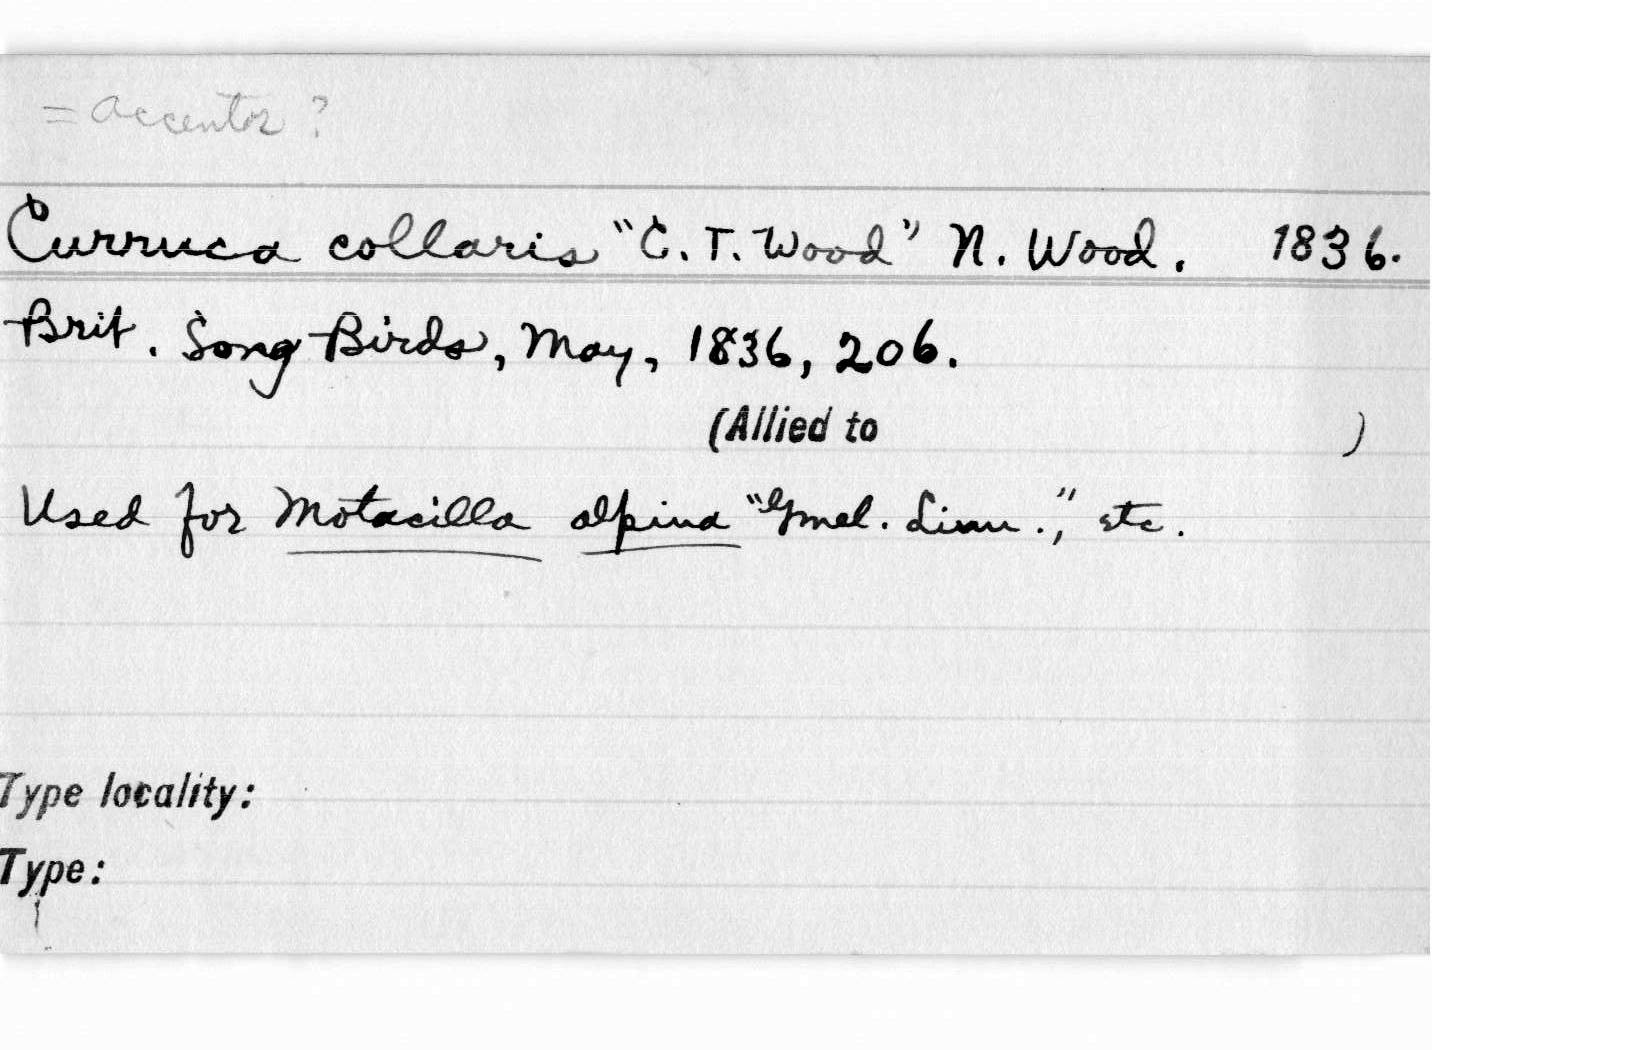 = Accentor ?
Curruca collaris "C. T. Wood" N. Wood. 1836.
Brit. Song Birds, May, 1836, 206.
(Allied to )
Used for Motacilla alpina "Gmel. Linn.," etc.
Type locality:
Type: